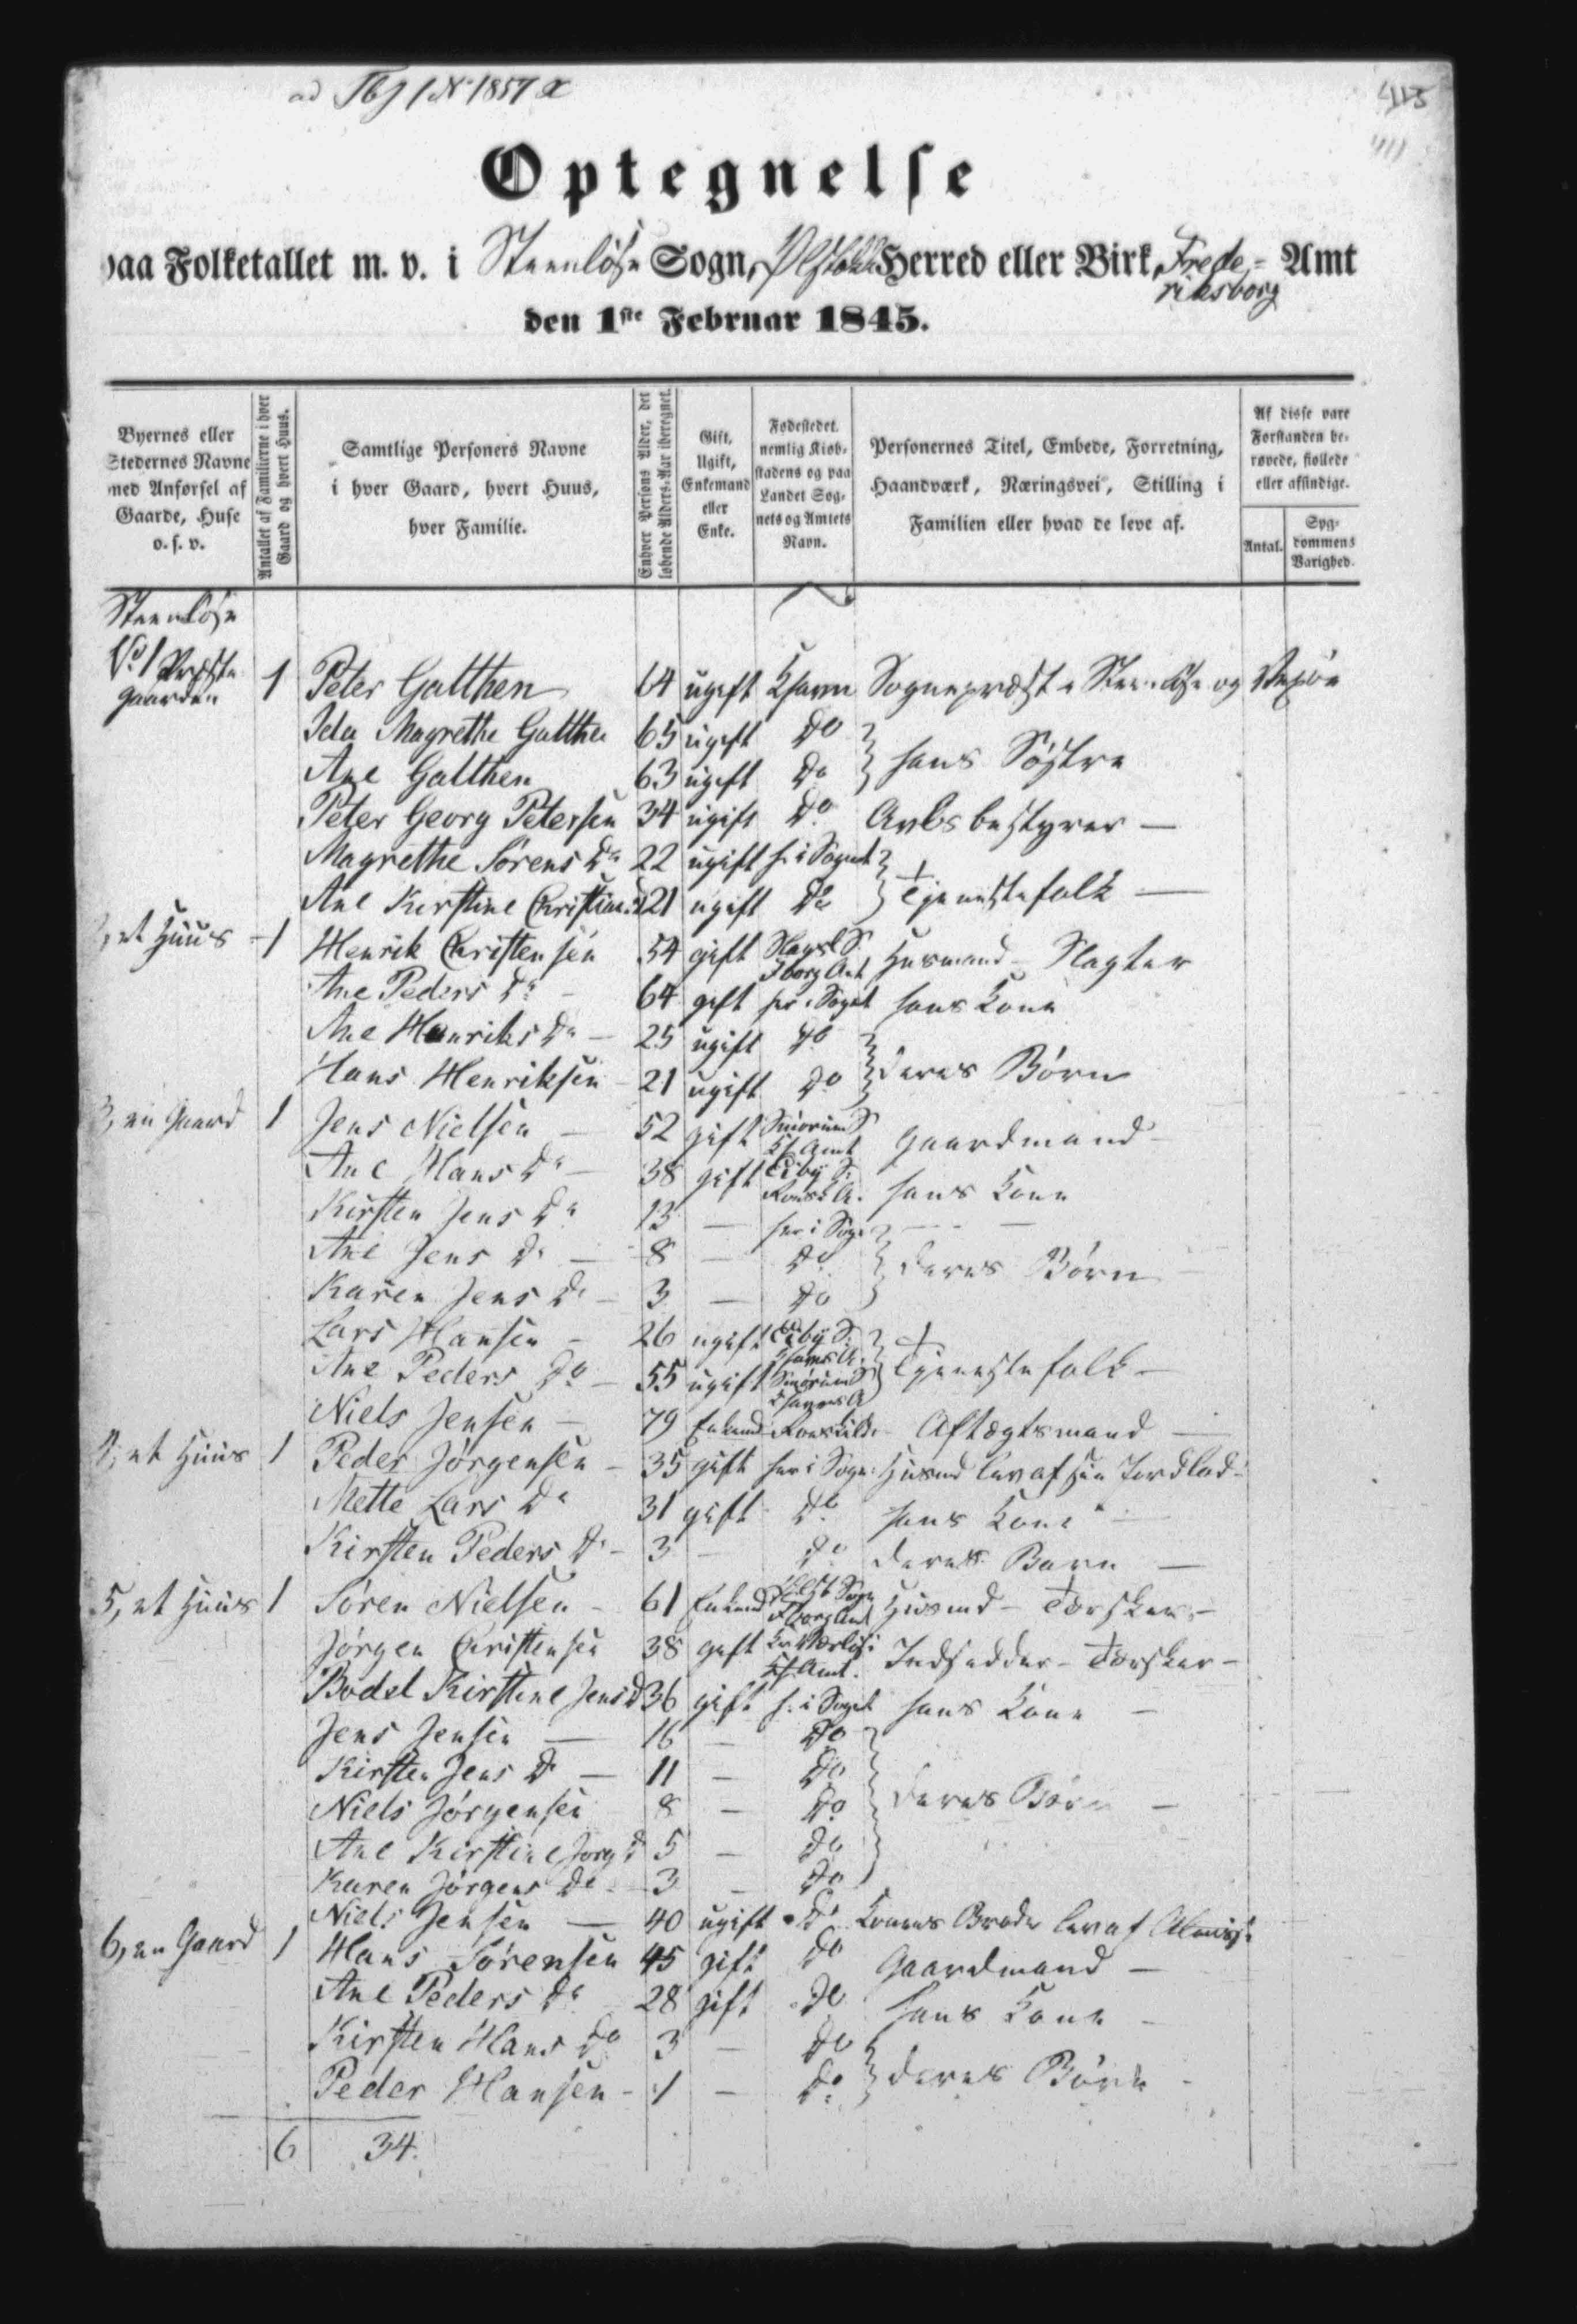 Optegnelse
paa Folketallet m. v. i Steenløse Sogn, Ølstykke Herred eller Birk, Frede- Amt
riksborg
den 1ste Februar 1845.
Byernes eller Stedernes Navne med Anførsel af Gaarde, Huse o. s. v.
Antallet af Familierne i hver Gaard og hvert Huus.
Samtlige Personers Navne i hver Gaard, hvert Huus, hver Familie.
Enhver Persons Alder, det løbende Alders-Aar iberegnet.
Gift, Ugift, Enkemand eller Enke.
Fødestedet. nemlig Kiøbstadens og paa Landet Sognets og Amtets Navn.
Personernes Titel, Embede, Forretning, Haandværk, Næringsvei, Stilling i Familien eller hvad de leve af.
Af disse vare Forstanden berøvede, fiollede eller afsindige.
Antal.
Sygdommens Varighed.
Steenløse
No 1 Præste gaarden 1 Peter Galthen 64 ugift Khavn Sognepræst Steenløse og Vexøe
Ida Magrethe Galthen 65 ugift do } hans Søstre
Ane Galthen 63 ugift do
Peter Georg Petersen 34 ugift do Avlsbestyrer —
Magrethe Sørens Da 22 ugift h. i Sognet } Tjenestefolk —
Ane Kirstine Christiansd 21 ugift do
2, et Huus 1 Henrik Christensen 54 gift Slagsl S. Fborg Amt Husmand - Slagter
Ane Peders Da - 64 gift her i Sognet hans Kone
Ane Henriks Da - 25 ugift do } deres Børn
Hans Henriksen - 21 ugift do
3, en Gaard 1 Jens Nielsen - 52 gift Smørum S Kh Amt Gaardmand -
Ane Hans Da - 38 gift Eiby S. Rousk A. hans Kone
Kirsten Jens Da 13 — her i Sogn } deres Børn
Ane Jens Da — 8 — do
Karen Jens Da - 3 — do
Lars Hansen - 26 ugift Eiby S. Khavns A. } Tjenestefolk -
Ane Peders Da - 55 ugift Smørum S Khavns A
Niels Jensen - 79 Enkemd Roeskilde Aftægtsmand —
4, et Huus 1 Peder Jørgensen - 35 gift her i Sogn Husmd lev af sin Jordlod -
Mette Lars Da 31 gift do hans Kone —
Kirsten Peders Da - 3 - do deres Barn —
5, et Huus 1 Søren Nielsen - 61 Enkemd Ølst Sogn Fborg Amt Husmd - Tærsker -
Jørgen Christensen 38 gift Kr Værløse Kh Amt. Indsidder - Tærsker -
Bodel Kirstine Jensd 36 gift h. i Sognet hans Kone -
Jens Jensen — 16 — do } deres Børn -
Kirsten Jens D — 11 — do
Niels Jørgensen 8 — do
Ane Kirstine Jørg D 5 — do
Karen Jørgens Da - 3 — do
Niels Jensen — 40 ugift do Konens Broder lev af Almisse
6, en Gaard 1 Hans Sørensen 45 gift do Gaardmand —
Ane Peders Da 28 gift do hans Kone -
Kirsten Hans Da 3 — do } deres Børn -
Peder Hansen - 1 — do
6 34.